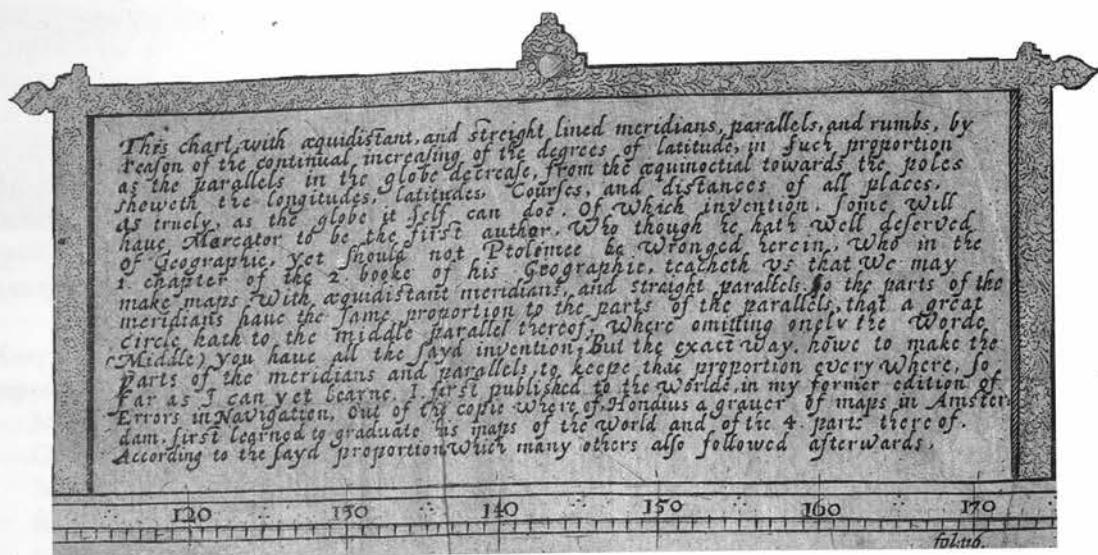 This chart, with æquidistant, and streight lined meridians, parallels, and rumbs, by
reason of the continual increasing of the degrees of latitude, in such proportion
as the parallels in the globe decrease, from the æquinoctial towards the poles
sheweth the longitudes, latitudes, Courses, and distances of all places,
as truely, as the globe it self can doe. Of which invention, some will
haue Mercator to be the first author, Who though he hath well deserved
of Geographie, yet should not Ptolemee be wronged herein, Who in the
1. chapter of the 2. booke of his Geographie, teacheth vs that We may
make maps With æquidistant meridians, and straight parallels, so the parts of the
meridians haue the same proportion to the parts of the parallels, that a great
circle hath to the middle parallel thereof, Where omitting onely the Worde
(Middle) you haue all the sayd invention; But the exact Way, howe to make the
parts of the meridians and parallels, to keepe that proportion every Where, so
far as I can yet learne, I first published to the Worlde, in my former edition of
Errors in Navigation, Out of the copie Where of, Hondius a graver of maps in Amster-
dam, first learned to graduate his maps of the World and of the 4. parts thereof.
According to the sayd proportion Which many others also followed afterwards.
120 130 140 150 160 170
fol:116.